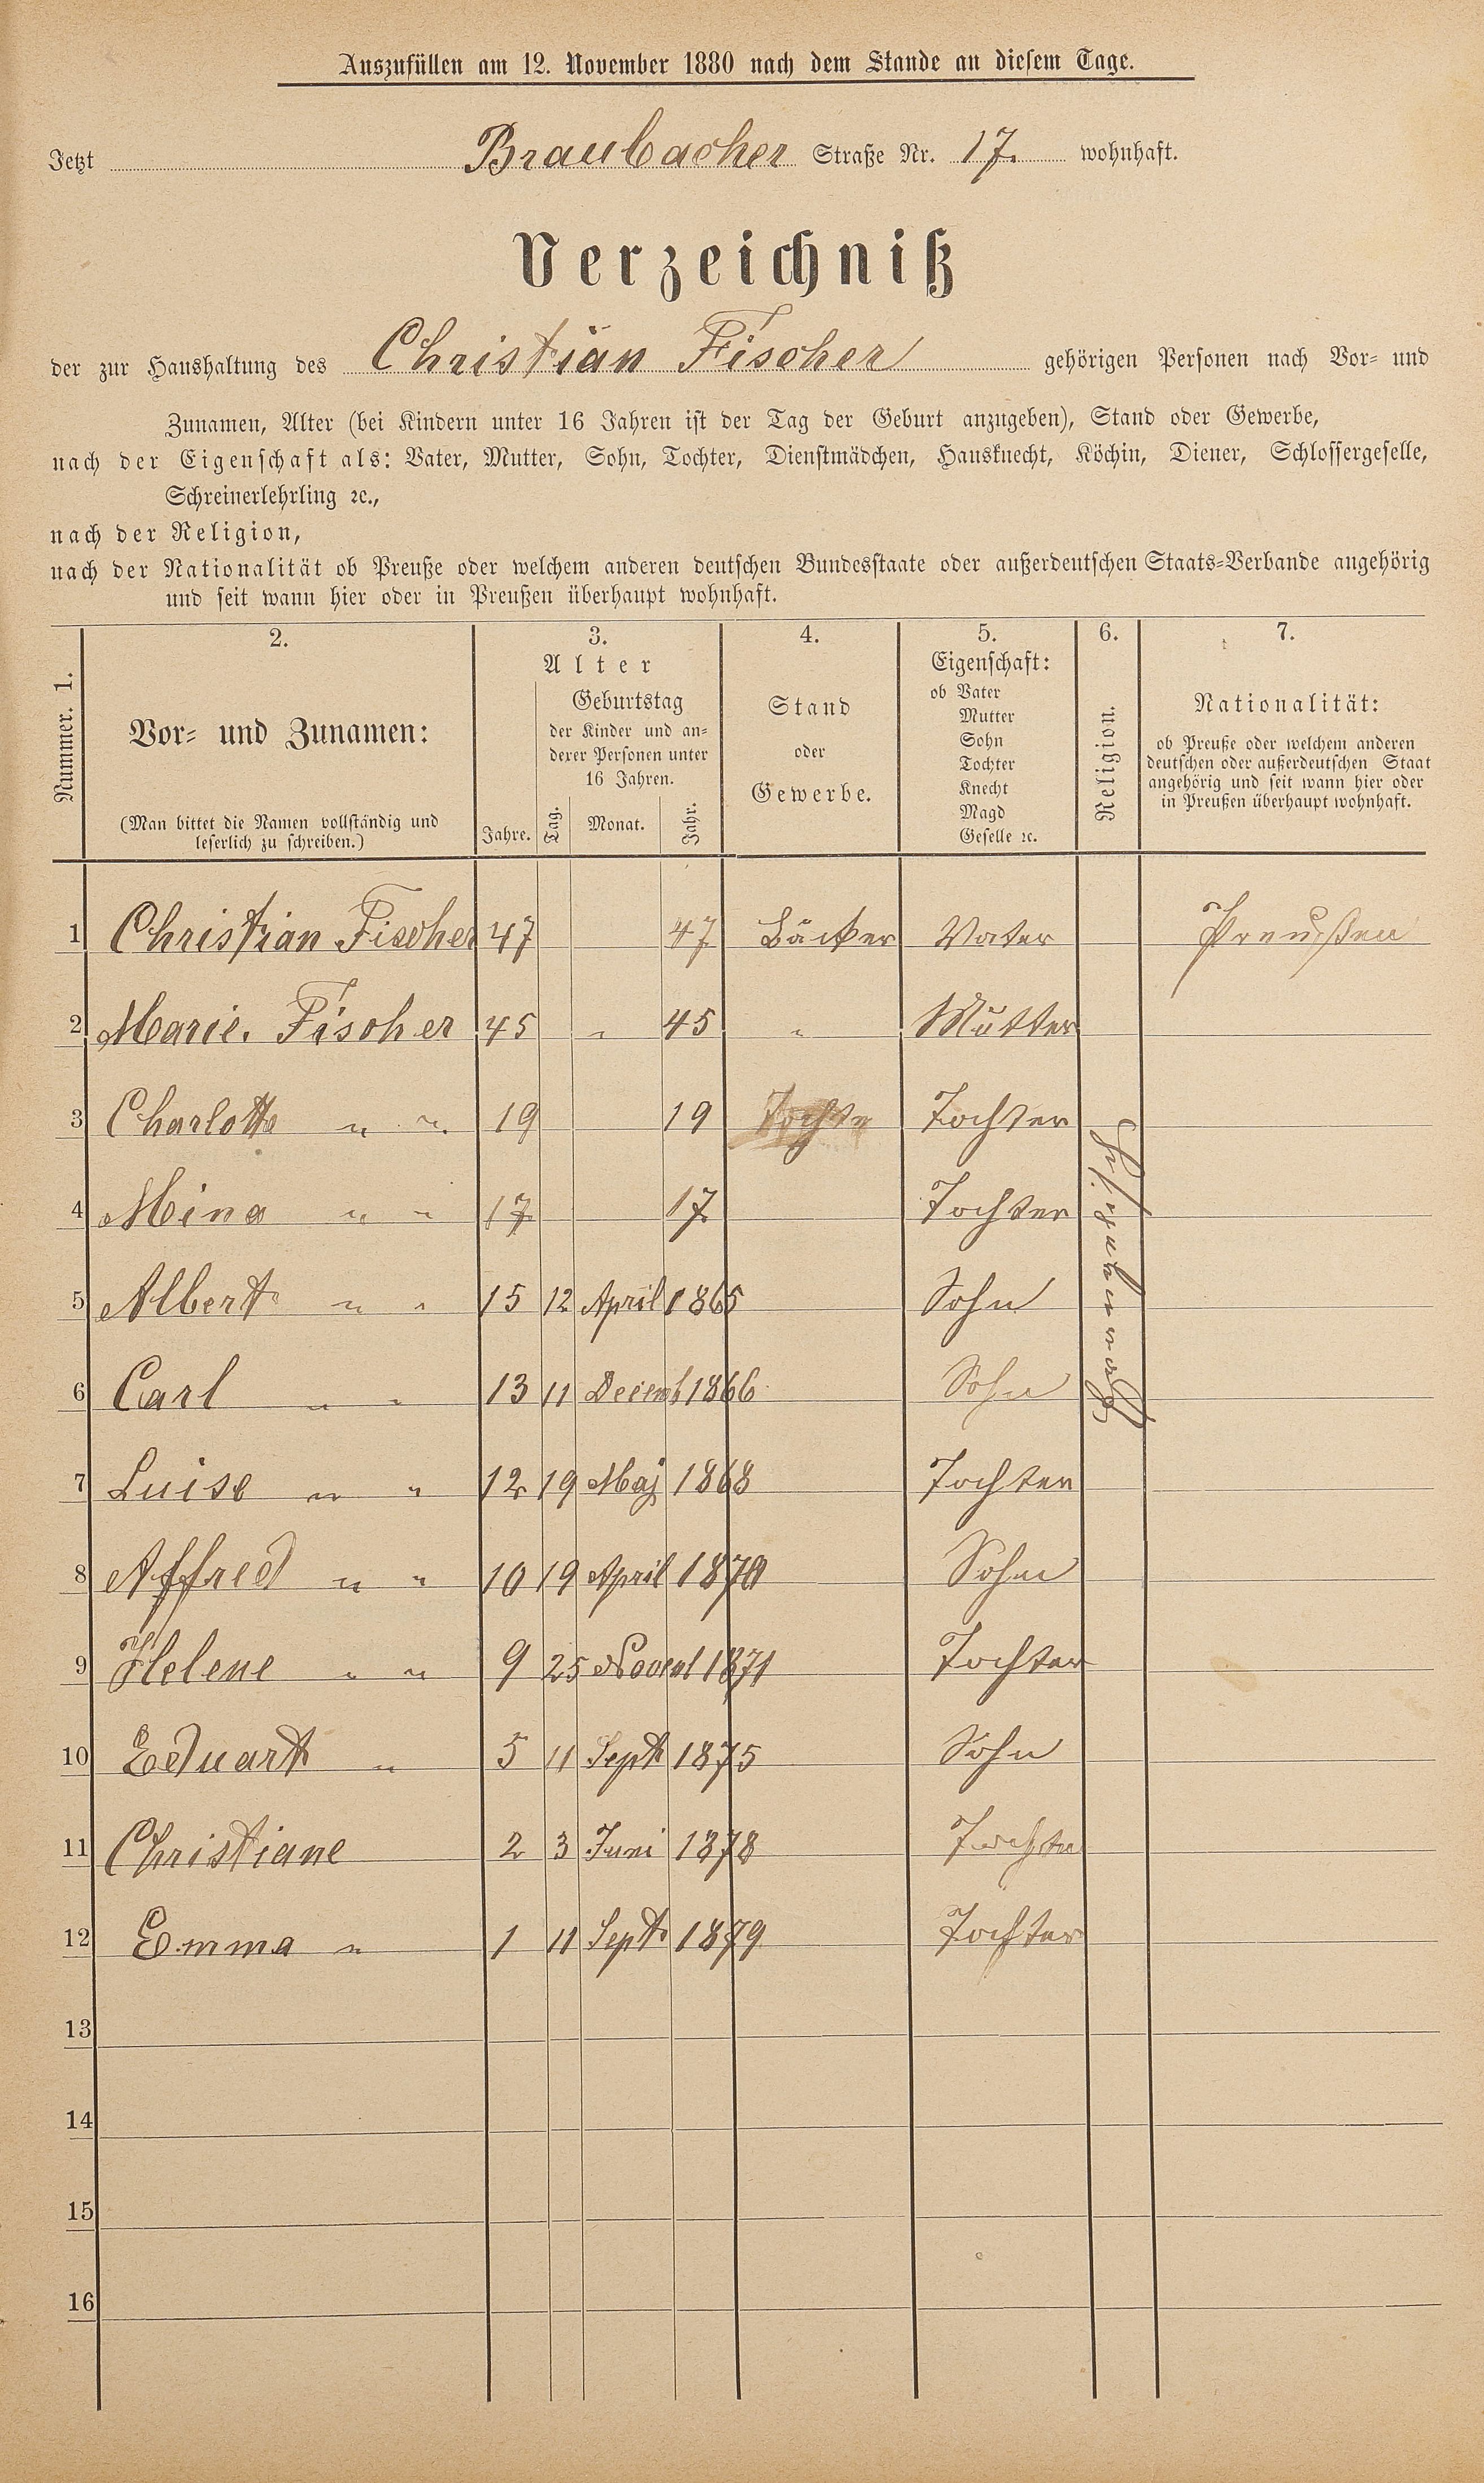 Auszufüllen am 12. November 1880 nach dem Stande an diesem Tage.
Jetzt Braubacher Straße Nr. 17. wohnhaft.
Verzeichniß
der zur Haushaltung des Christian Fischer gehörigen Personen nach Vor- und
Zunamen, Alter (bei Kindern unter 16 Jahren ist der Tag der Geburt anzugeben), Stand oder Gewerbe,
nach der Eigenschaft als: Vater, Mutter, Sohn, Tochter, Dienstmädchen, Hausknecht, Köchin, Diener, Schlossergeselle,
Schreinerlehrling ꝛc.,
nach der Religion,
nach der Nationalität ob Preuße oder welchem anderen deutschen Bundesstaate oder außerdeutschen Staats-Verbande angehörig
und seit wann hier oder in Preußen überhaupt wohnhaft.
Nummer. 1.
2.
Vor- und Zunamen:
(Man bittet die Namen vollständig und
leserlich zu schreiben.)
3.
Alter
Geburtstag
der Kinder und an-
derer Personen unter
16 Jahren.
Jahre. Tag. Monat. Jahr.
4.
Stand
oder
Gewerbe.
5.
Eigenschaft:
ob Vater
Mutter
Sohn
Tochter
Knecht
Magd
Geselle ꝛc.
6.
Religion.
7.
Nationalität:
ob Preuße oder welchem anderen
deutschen oder außerdeutschen Staat
angehörig und seit wann hier oder
in Preußen überhaupt wohnhaft.
1 Christian Fischer 47 47 Bäcker Vater Preußen
2 Marie. Fischer 45 " 45 " Mutter
3 Charlotte " " 19 19 Tochte Tochter
4 Mina " " 17 17 Tochter
5 Albert " " 15 12 April 1865 Sohn
6 Carl " " 13 11 Decemb 1866 Sohn
7 Luise " " 12 19 Maj 1868 Tochter
8 Affred " " 10 19 April 1870 Sohn
9 Helene " " 9 25 Novem 1871 Tochter
10 Eduart " 5 11 Sept 1875 Sohn
11 Christiane 2 3 Juni 1878 Tochter
12 Emma " 1 11 Sept 1879 Tochter
Evangelisch
13
14
15
16